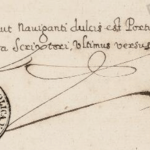 ut Nauiganti dulcis est Port
a Scriptori, Vltimus versus